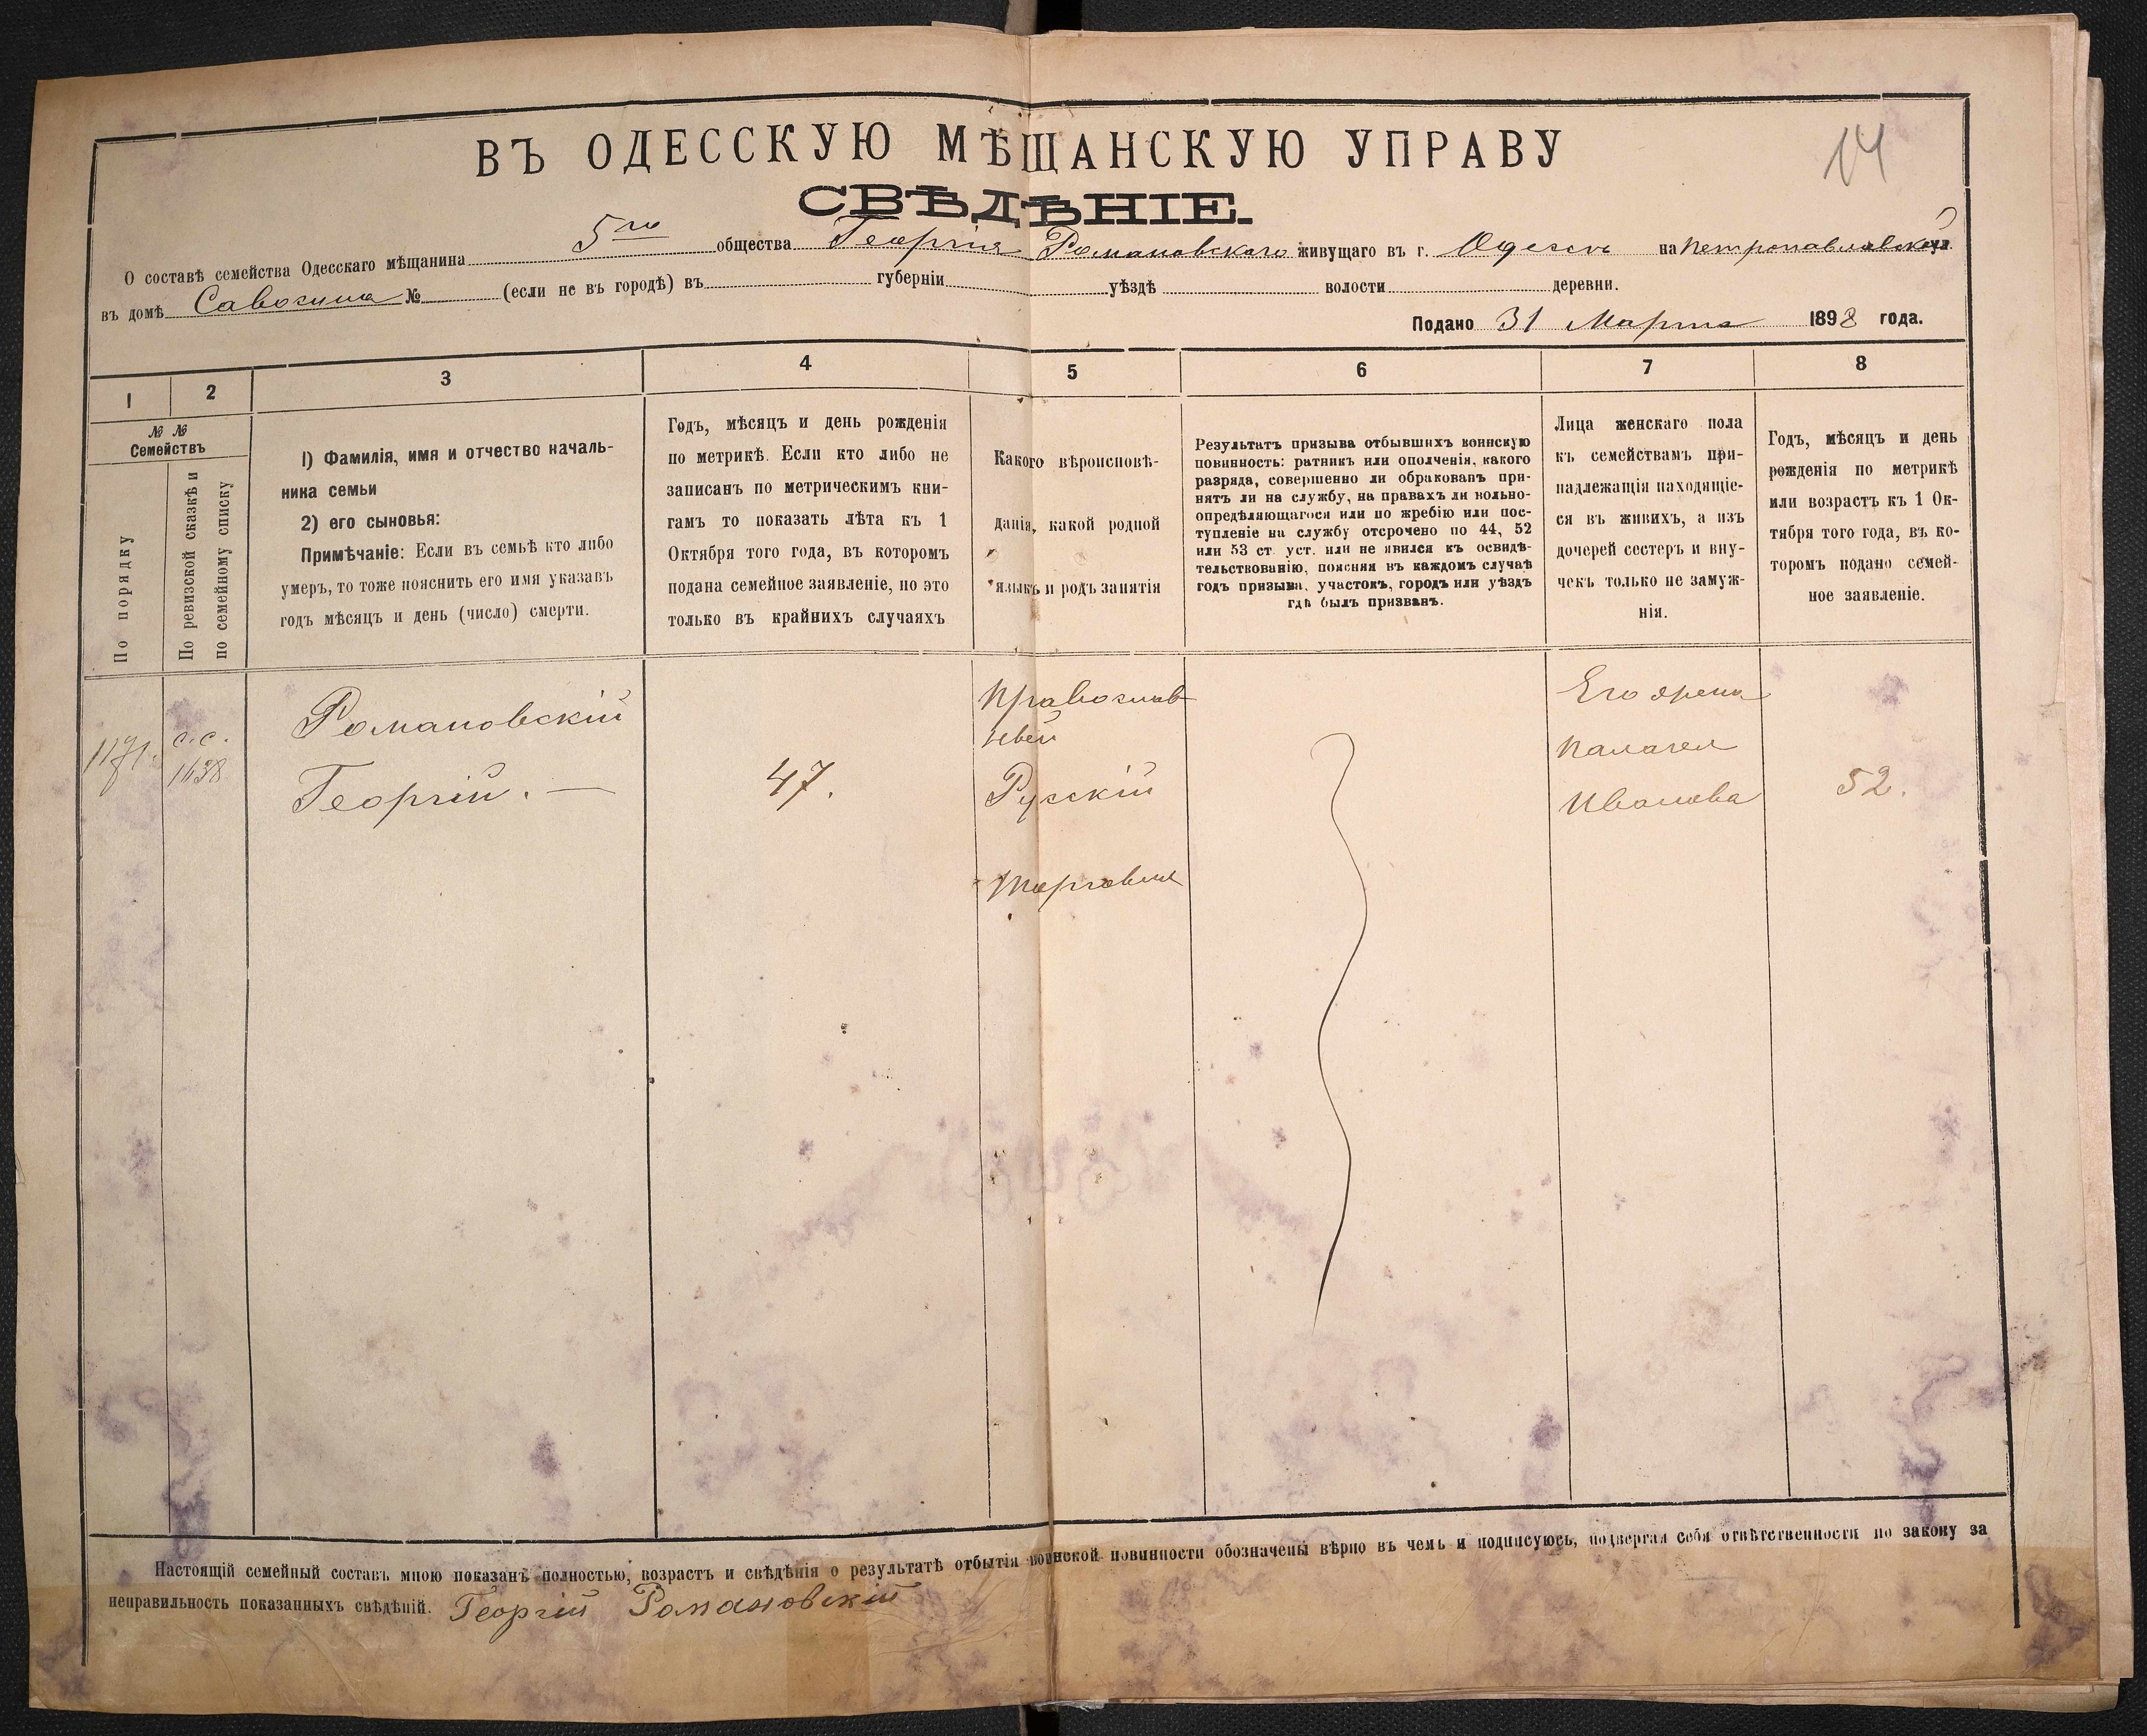 ВЪ ОДЕССКУЮ МѢЩАНСКУЮ УПРАВУ
14
СВѢДѢНІЕ.
О составѣ семейства Одесскаго мѣщанина 5го общества Георгія Романовскаго живущаго въ г. Одессѣ на Петропавловской ул.
въ домѣ № (если не въ городѣ) въ губерніи уѣздѣ волости деревни.
Подано 31 Марта 1898 года.
1 2 3 4 5 6 7 8
№ №
Семействъ
По порядку
По ревизской сказкѣ и
по семейному списку
1) Фамилія, имя и отчество началь-
ника семьи
2) его сыновья:
Примѣчаніе: Если въ семьѣ кто либо
умеръ, то тоже пояснить его имя указавъ
годъ мѣсяцъ и день (число) смерти.
Годъ, мѣсяцъ и день рожденія
по метрикѣ. Если кто либо не
записанъ по метрическимъ кни-
гамъ то показать лѣта къ 1
Октября того года, въ которомъ
подана семейное заявленіе, но это
только въ крайнихъ случаяхъ
Какого вѣроисповѣ-
данія, какой родной
языкъ и родъ занятія
Результатъ призыва отбывшихъ воинскую
повинность: ратникъ или ополченія, какого
разряда, совершенно ли обракованъ при-
нятъ ли на службу, на правахъ ли вольно-
опредѣляющагося или по жребію или пос-
тупленіе на службу отсрочено по 44, 52
или 53 ст. уст. или не явился къ освидѣ-
тельствованію, поясняя въ каждомъ случаѣ
годъ призыва, участокъ, городъ или уѣздъ
гдѣ былъ призванъ.
Лица женскаго пола
къ семействамъ при-
надлежащія находящіе-
ся въ живихъ, а изъ
дочерей сестеръ и вну-
чекъ только не замуж-
нія.
Годъ, мѣсяцъ и день
рожденія по метрикѣ
или возрастъ къ 1 Ок-
тября того года, въ ко-
торомъ подано семей-
ное заявленіе.
1171.
с.с.
1638
Романовскій
Георгій. —
47.
Православ
ней
Русскій
Торговля
Его
Палагея
Иванова
52.
Настоящій семейный составъ мною показанъ полностью, возрастъ и свѣдѣнія о результатѣ отбытія воинской повинности обозначены вѣрно въ чемъ и подписуюсь, подвергая себя отвѣтственности по закону за
неправильность показанныхъ свѣдѣній. Георгій Романовскій